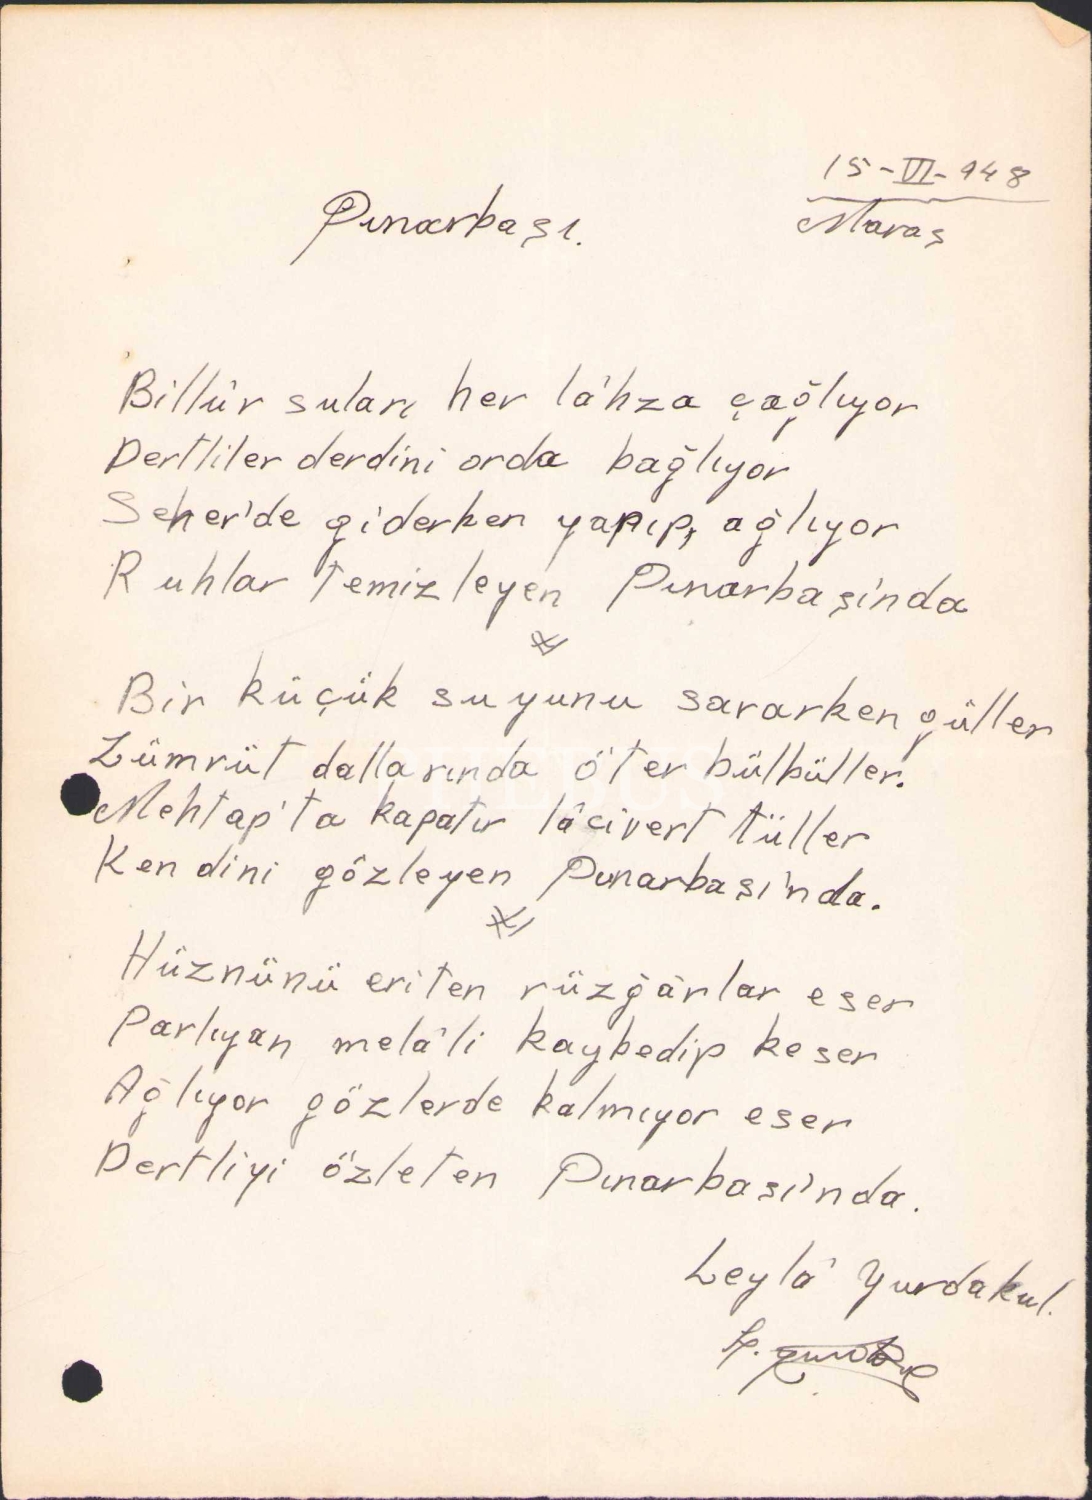 15-VI-948
Maraş
Pınarbaşı.
Billûr suları her lâhza çağlıyor
Dertliler derdini orda bağlıyor
Seher'de giderken yapıp, ağlıyor
Ruhlar temizleyen Pınarbaşı'nda
Bir küçük suyunu sararken güller
Zümrüt dallarında öter bülbüller.
Mehtap'ta kapatır lâcivert tüller
Kendini gözleyen Pınarbaşı'nda.
Hüznünü eriten rüzgârlar eser
Parlıyan melâli kaybedip keser
Ağlıyor gözlerde kalmıyor eser
Dertliyi özleten Pınarbaşı'nda.
Leylâ Yurdakul.